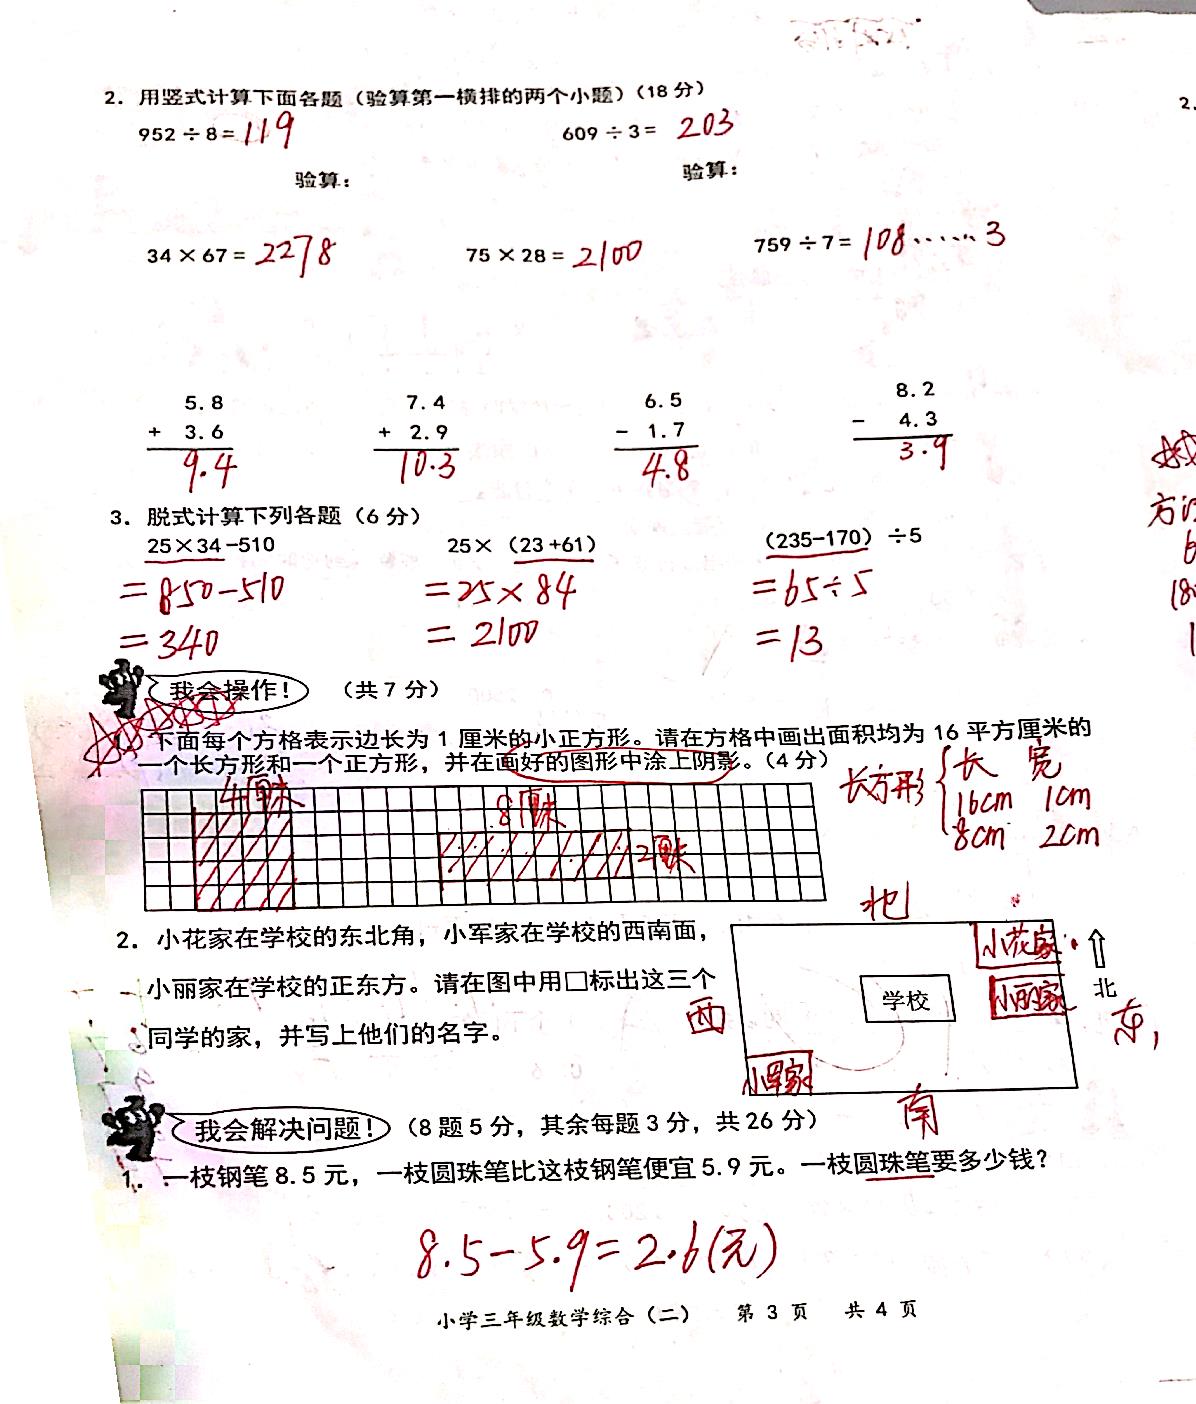 2. 用竖式计算下面各题（验算第一横排的两个小题）（18分）
952÷8=119 609÷3= 203
验算： 验算：
34×67= 2278 75×28= 2100 759÷7= 108……3
5.8 7.4 6.5 8.2
+ 3.6 + 2.9 - 1.7 - 4.3
9.4 10.3 4.8 3.9
3. 脱式计算下列各题（6分）
25×34-510 25×（23+61） （235-170）÷5
=850-510 =25×84 =65÷5
=340 =2100 =13
我会操作！（共7分）
1. 下面每个方格表示边长为1厘米的小正方形。请在方格中画出面积均为16平方厘米的
一个长方形和一个正方形，并在画好的图形中涂上阴影。（4分）
长方形 长 宽
16cm 1cm
8cm 2cm
4厘米
8厘米
2厘米
北
2. 小花家在学校的东北角，小军家在学校的西南面，
小丽家在学校的正东方。请在图中用□标出这三个
同学的家，并写上他们的名字。
小花家
学校 小丽家 北
西 东
小军家
南
我会解决问题！（8题5分，其余每题3分，共26分）
1. 一枝钢笔8.5元，一枝圆珠笔比这枝钢笔便宜5.9元。一枝圆珠笔要多少钱？
8.5-5.9=2.6(元)
小学三年级数学综合（二） 第3页 共4页
2.
方